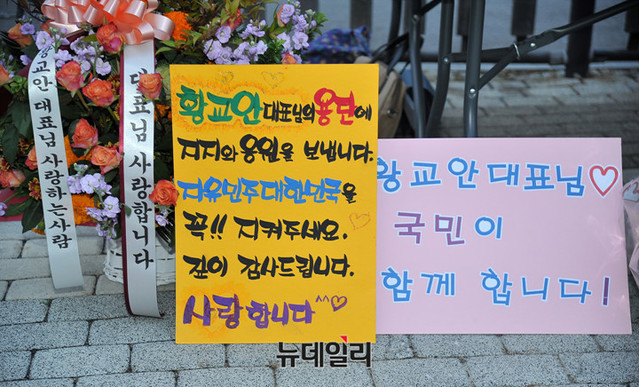 황교안 대표님 사랑하는 사람
대표님 사랑합니다
황교안 대표님의 용단에
지지와 응원을 보냅니다.
자유민주대한민국을
꼭!! 지켜주세요.
깊이 감사드립니다.
사랑합니다^^♡
황교안대표님♡
국민이
함께 합니다!
뉴데일리